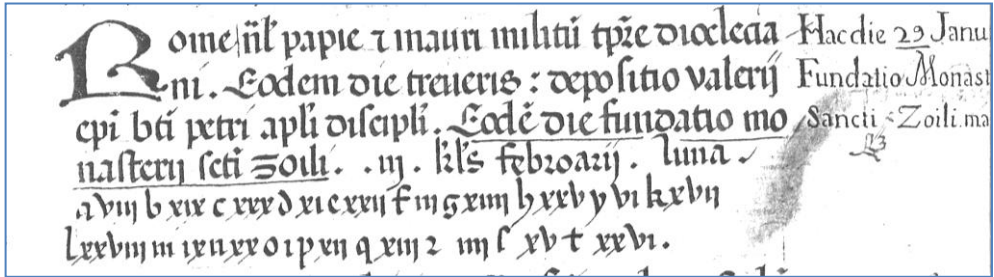 Rome nr̄l papie ⁊ mauri militū tp̄re dioclecia
ni. Eodem die treueris : depositio valerij
ep̄i bt̄i petri apl̄i discipl̄i. Eodē die fundatio mo
nasterij sc̄ti zoili. .iij. kl̄s februarij. luna.
a viij b xix c xxx d xi e xxij f iij g xiiij h xxv y vi k xvij
l xxviij m ix n xx o i p xij q xxiij 2 iiij ſ xv t xxvi.
Hac die 29 Janu
Fundatio Monast
Sancti Zoili. ma